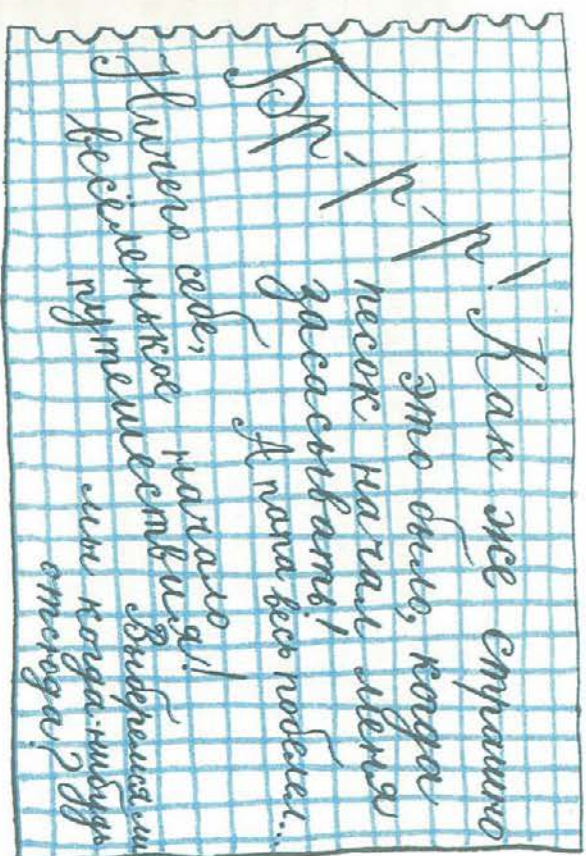 Бр-р-р! Как же страшно
это было, когда
песок начал меня
засасывать!
А папа весь побелел...
Ничего себе,
весёленькое начало
путешествия!
Выберемся ли
мы когда-нибудь
отсюда?